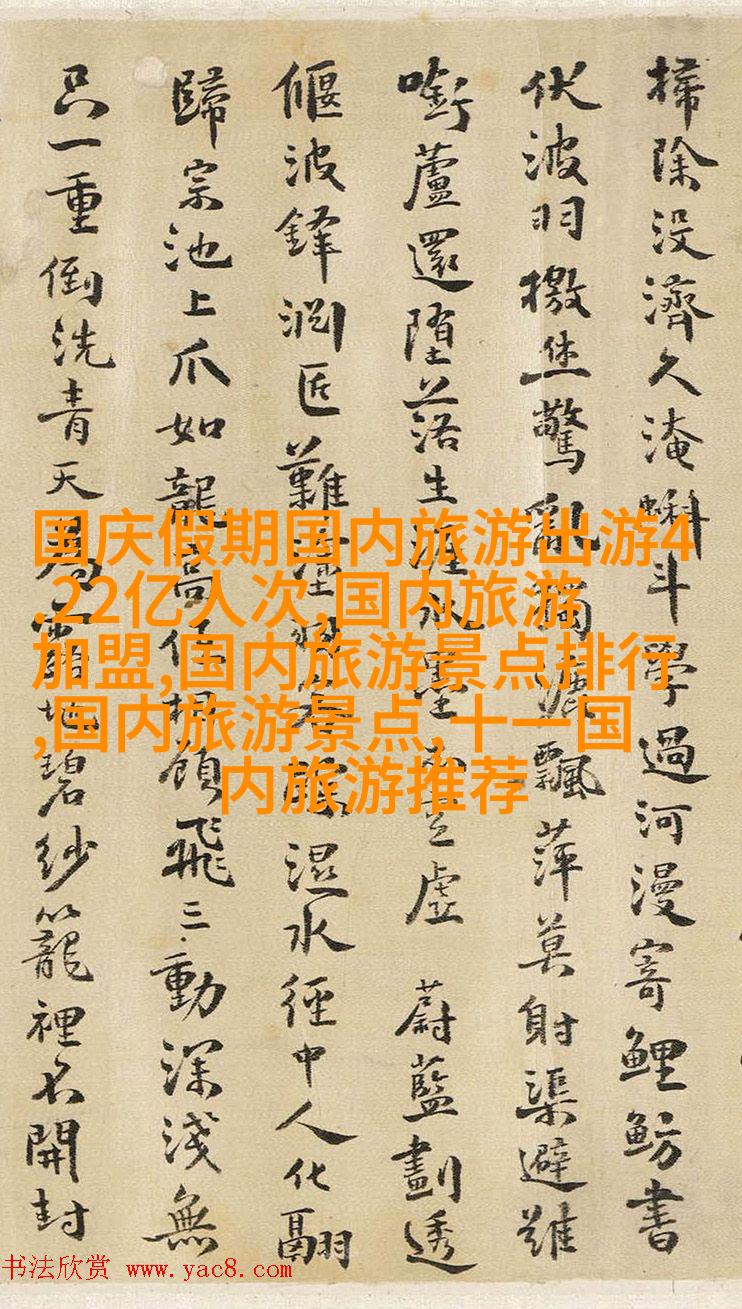 掃除没濟久淹蝌斗學過河漫寄鯉魴書
伏波羽檄驚亂獨漉飄萍莫射渠避雖
蘆還墮落生涯水墨虛 蔚藍劃透
偃波鋒匠難濕水經中人化翮
歸宗池上爪如龍任頷飛三動深淺無
只一重倒洗青天地碧紗籠裡不開封
国庆假期国内旅游出游4
.22亿人次,国内旅游
加盟,国内旅游景点排行
,国内旅游景点,十一国
内旅游推荐
书法欣赏 www.yac8.com